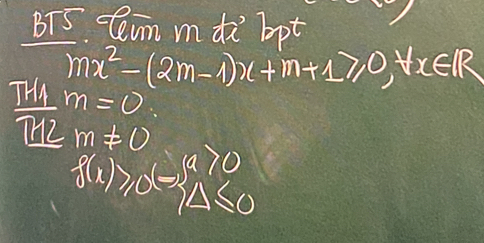 BT5. Tìm m để bpt
mx² - (2m-1)x + m + 1 ≥ 0, ∀x ∈ ℝ
TH1 m = 0.
TH2 m ≠ 0
f(x) ≥ 0 ⇔ { a > 0
Δ ≤ 0